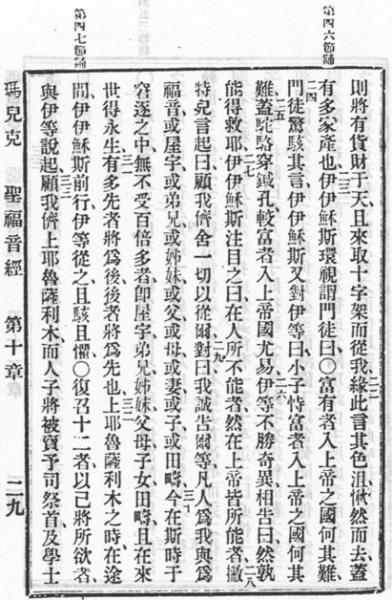 第四六節誦
則將有貨財于天、且來取十字架而從我、緣此言其色沮愀然而去、蓋
有多家產也、伊伊穌斯環視謂門徒曰、〇富有者入上帝之國何其難、
門徒驚駭其言、伊伊穌斯又對伊等曰、小子恃富者入上帝之國何其
難、蓋駝駱穿鍼孔、較富者入上帝國尤易、伊等不勝奇異相告曰、然孰
能得救耶、伊伊穌斯注目之曰、在人所不能者、然在上帝皆所能者、撇
特兒言起曰、顧我儕舍一切以從爾、對曰、我誠告爾等、凡人爲我與爲
福音、或屋宇、或弟兄、或姊妹、或父、或母、或妻、或子、或田疇、今在斯時于
窘逐之中、無不受百倍多者、卽屋宇弟兄姊妹父母子女田疇、且在來
世得永生、有多先者將爲後、後者將爲先也、上耶魯薩利木之時、在途
第四七節誦
間伊伊穌斯前行、伊等從之、且駭且懼、〇復召十二者、以己將所欲者、
與伊等說起、顧我儕上耶魯薩利木、而人子將被賣予司祭首及學士、
瑪兒克 聖福音經 第十章 二九